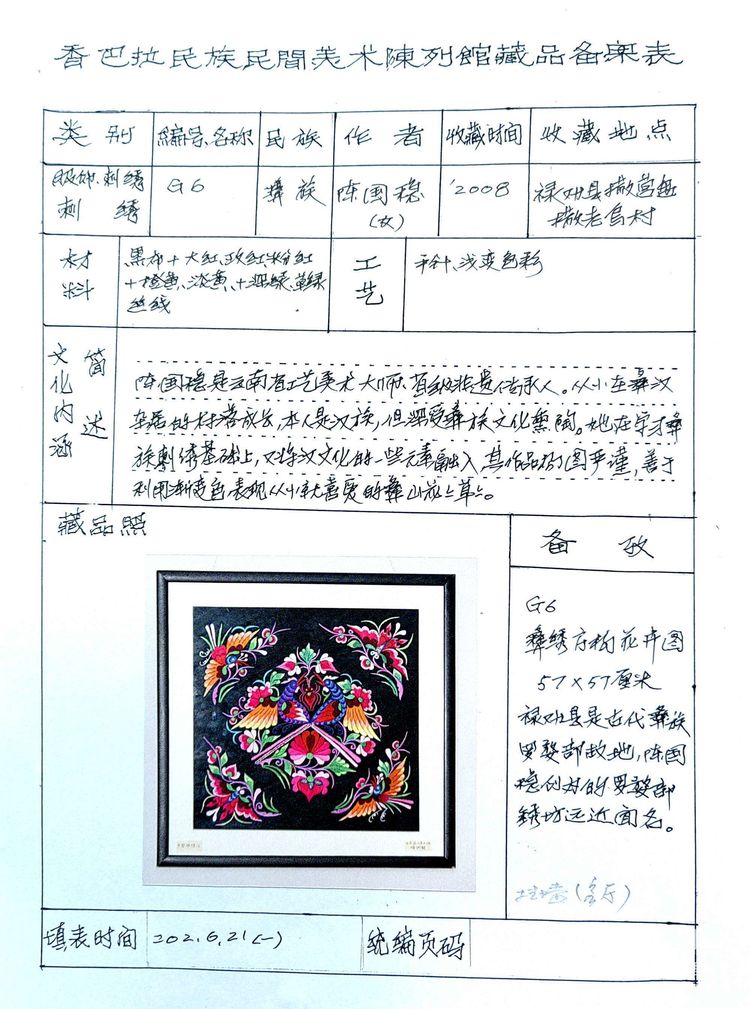 香巴拉民族民間美术陳列館藏品备案表
类别 编号、名称 民族 作者 收藏时间 收藏地点
服饰、刺绣 G6 彝族 陈国稳 2008 禄劝县撒营盘
刺绣 (女) 撒老乌村
材料 黑布+大红、玫红、粉红 工艺 平针、浅变色彩
+橙黄、淡黄、+深绿、草绿
丝线
文化内涵 简述
陈国稳是云南省工艺美术大师、省级非遗传承人。从小在彝汉
杂居的村落成长,本人是汉族,但深受彝族文化熏陶。她在学习彝
族刺绣基础上,又将汉文化的一些元素融入其作品构图严谨,善于
利用渐变色表现从小就喜爱的彝山花花草草。
藏品照 备考
G6
彝绣方构花卉图
57×57厘米
禄劝县是古代彝族
罗婺部故地,陈国
稳创办的罗婺部
绣坊远近闻名。
挂墙(客厅)
填表时间 202.6.21(一) 统编页码